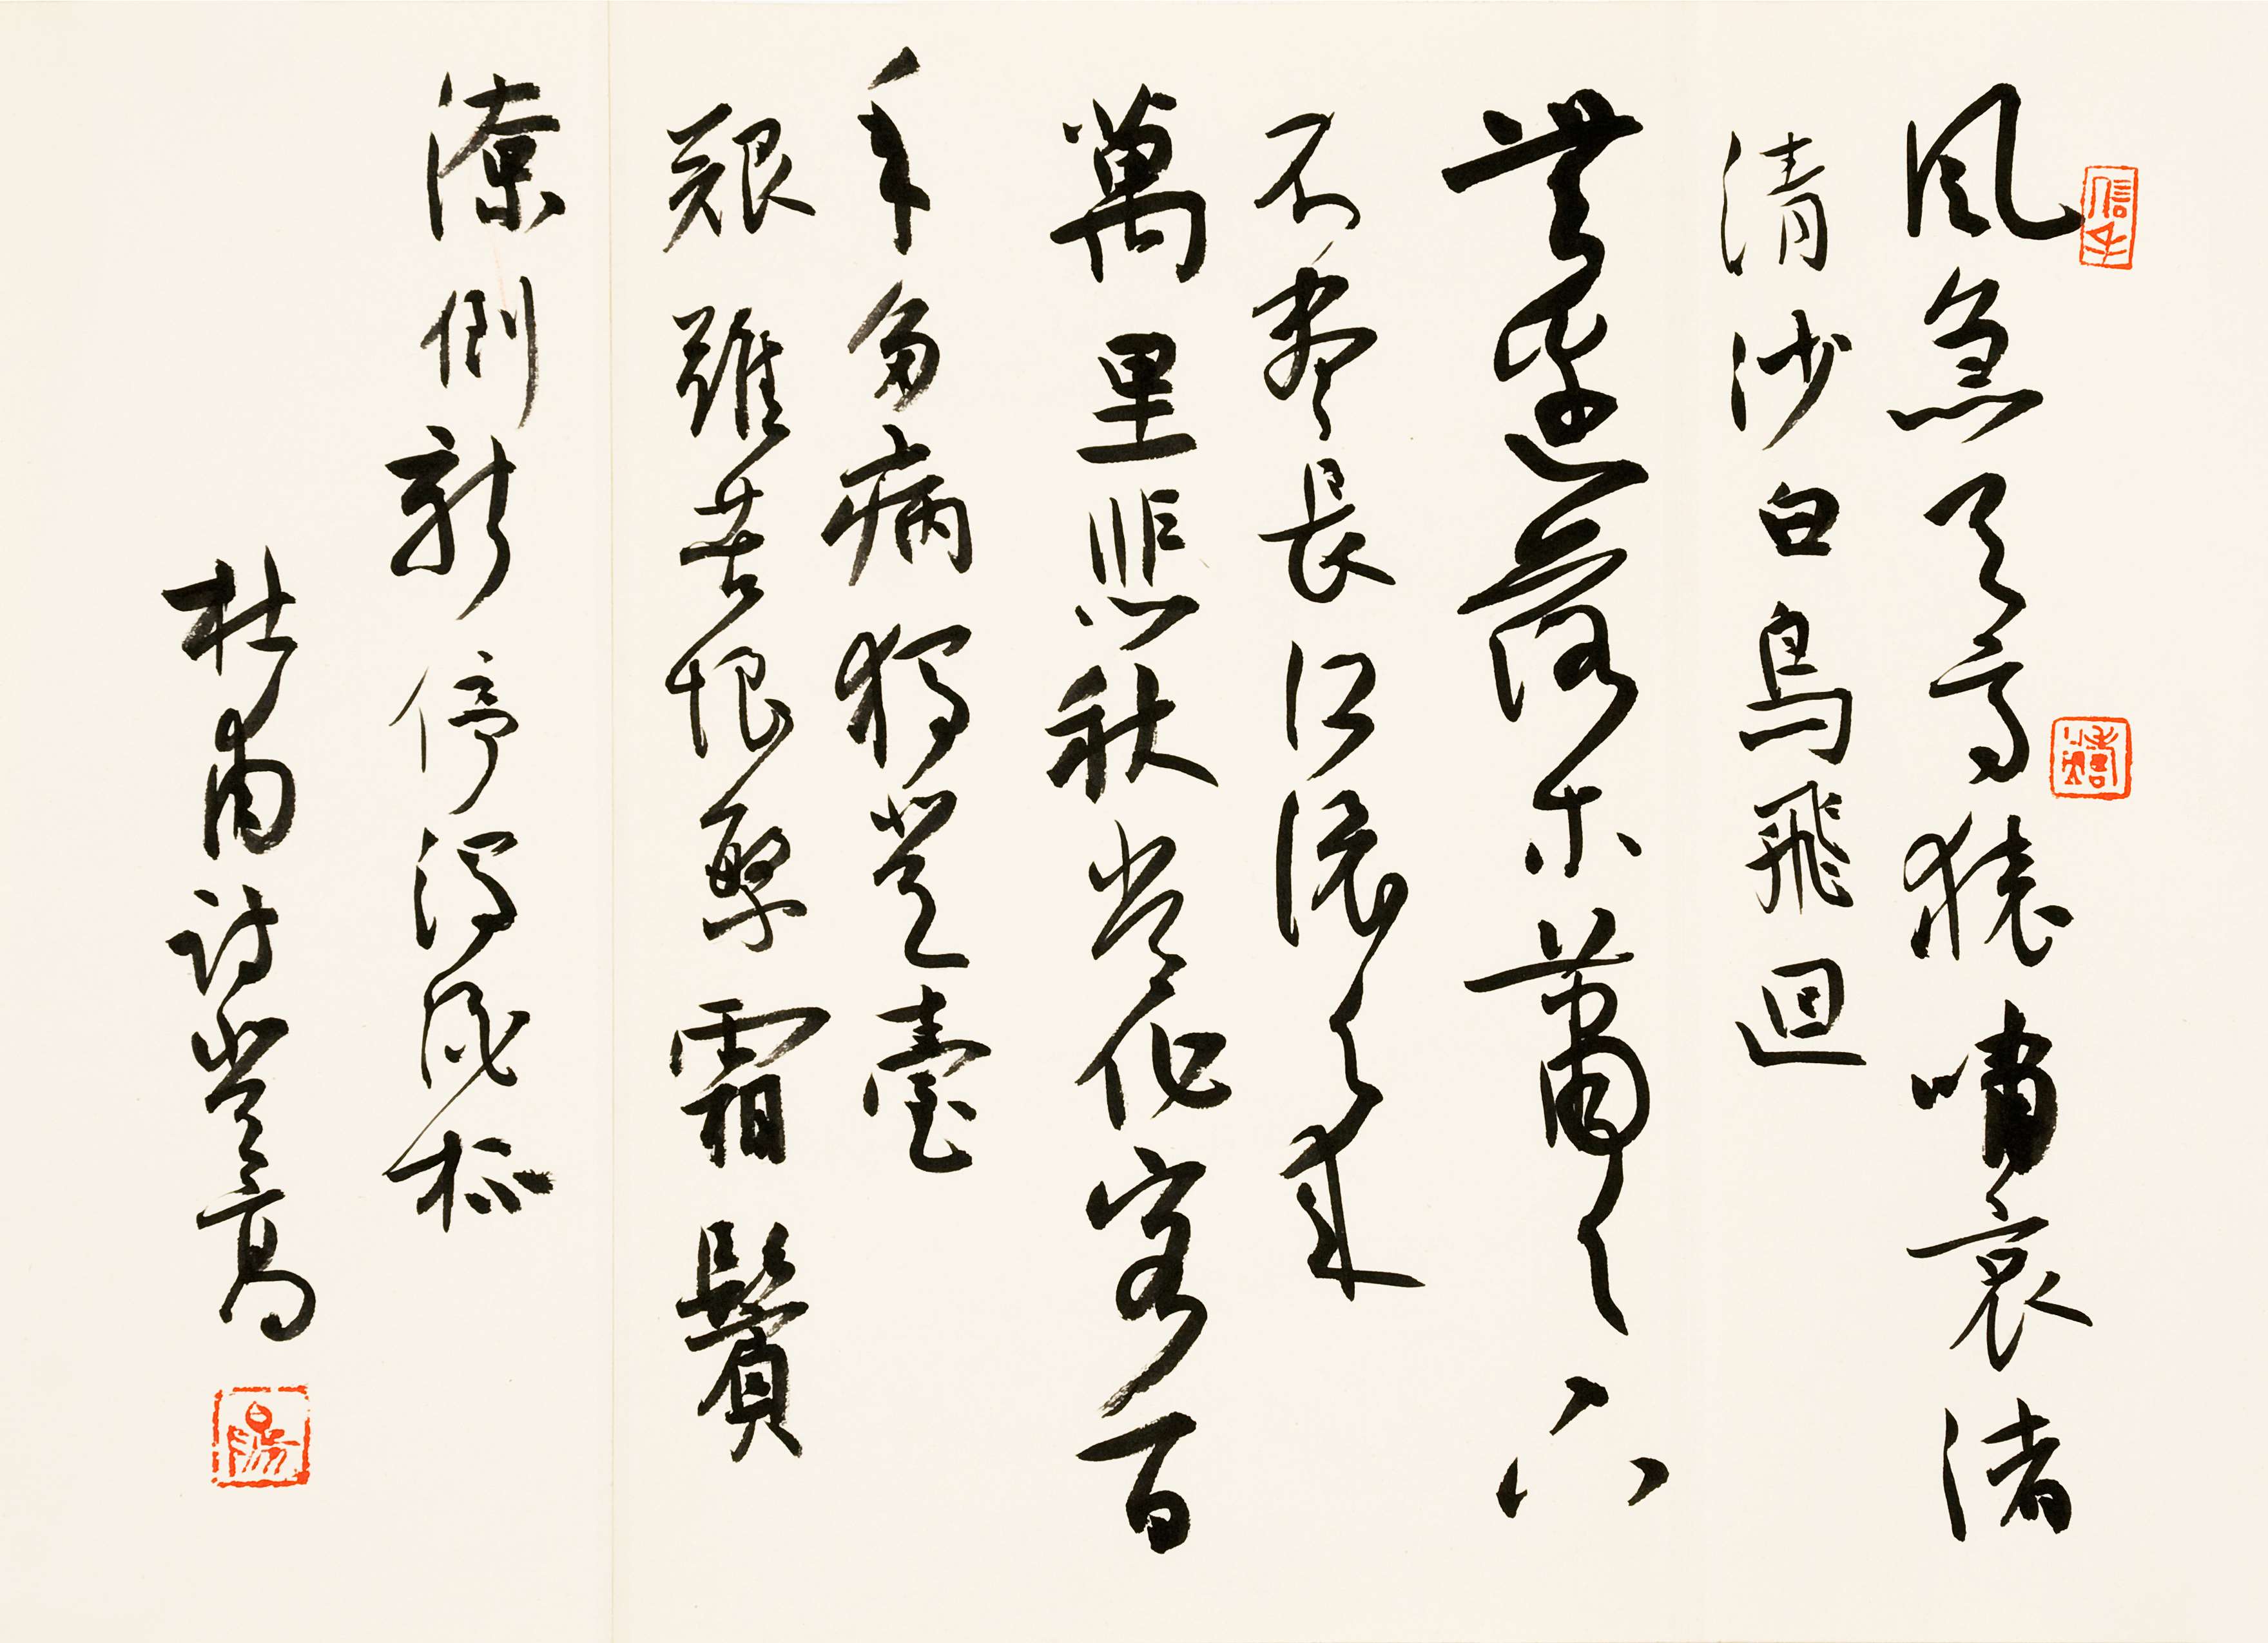 信手
風急天高猿嘯哀渚
清沙白鳥飛迴
無邊落木蕭〻下
不盡長江滾〻來
萬里悲秋常作客百
年多病獨登臺
艱難苦恨繁霜鬢
潦倒新停濁酒杯
杜甫詩登高